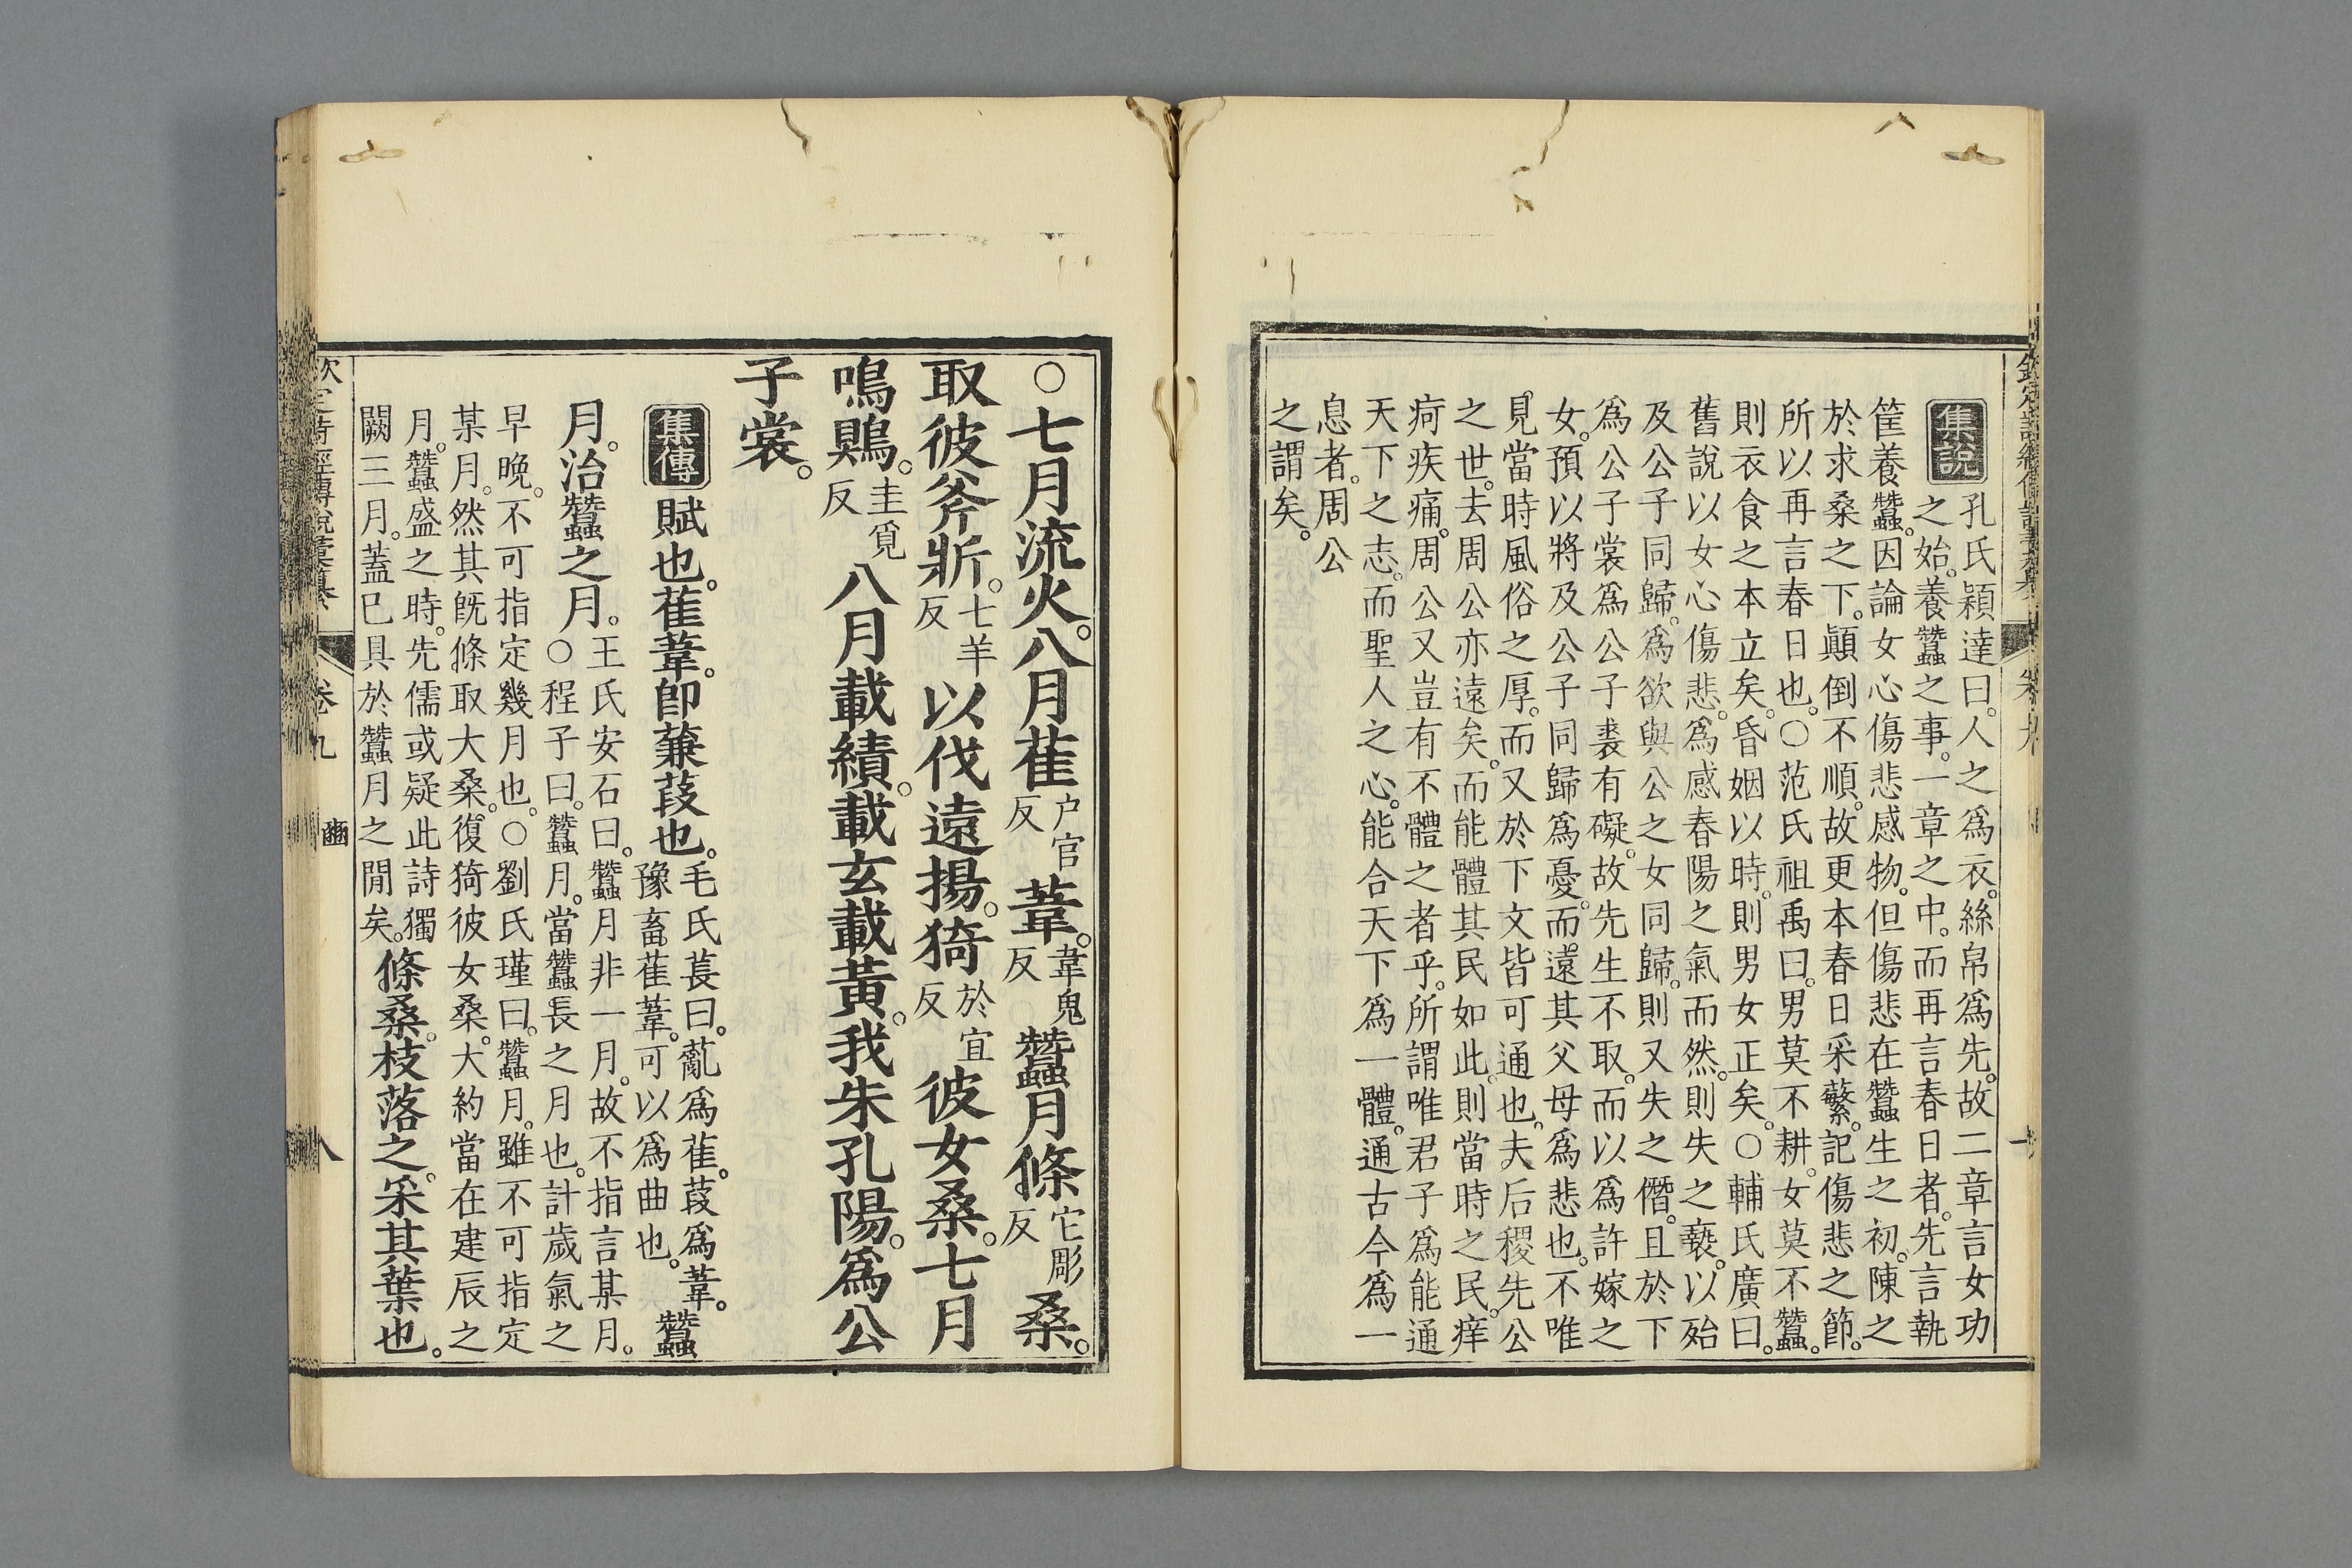 集說 孔氏穎達曰。人之爲衣。絲帛爲先。故二章言女功
之始。養蠶之事。一章之中。而再言春日者。先言執
筐養蠶。因論女心傷悲感物。但傷悲在蠶生之初。陳之
於求桑之下。顛倒不順。故更本春日采蘩。記傷悲之節。
所以再言春日也。○范氏祖禹曰。男莫不耕。女莫不蠶。
則衣食之本立矣。昏姻以時。則男女正矣。○輔氏廣曰。
舊說以女心傷悲。爲感春陽之氣而然。則失之褻。以殆
及公子同歸。爲欲與公之女同歸。則又失之僭。且於下
爲公子裳爲公子裘有礙。故先生不取。而以爲許嫁之
女。預以將及公子同歸爲憂。而遠其父母爲悲也。不唯
見當時風俗之厚。而又於下文皆可通也。夫后稷先公
之世。去周公亦遠矣。而能體其民如此。則當時之民。痒
疴疾痛。周公又豈有不體之者乎。所謂唯君子爲能通
天下之志。而聖人之心。能合天下爲一體。通古今爲一
息者。周公
之謂矣。
○七月流火。八月萑戶官反葦。韋鬼反蠶月條它彫反桑。
取彼斧斨。七羊反以伐遠揚。猗於宜反彼女桑。七月
鳴鵙。圭覓反八月載績。載玄載黃。我朱孔陽。爲公
子裳。
集傳 賦也。萑葦。卽蒹葭也。毛氏萇曰。薍爲萑。葭爲葦。
豫畜萑葦。可以爲曲也。蠶
月。治蠶之月。王氏安石曰。蠶月非一月。故不指言某月。
○程子曰。蠶月。當蠶長之月也。計歲氣之
早晚。不可指定幾月也。○劉氏瑾曰。蠶月。雖不可指定
某月。然其旣條取大桑。復猗彼女桑。大約當在建辰之
月。蠶盛之時。先儒或疑此詩獨
闕三月。蓋已具於蠶月之閒矣。條桑。枝落之。采其葉也。
卷九 豳 八